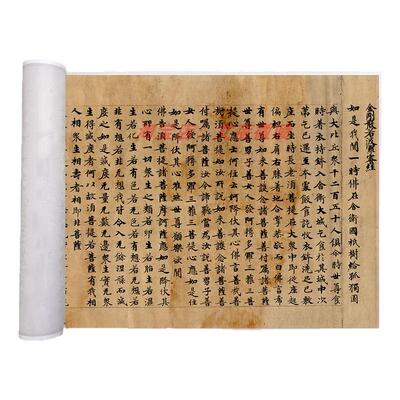 金剛般若波羅蜜經
如是我聞一時佛在舍衛國祇樹給孤獨園
與大比丘衆千二百五十人俱尒時世尊食
時着衣持鉢入舍衛大城乞食於其城中次
苐乞已還至本處飯食訖收衣鉢洗足已敷
座而坐時長老湏菩提在大衆中即從座起
偏袒右肩右膝着地合掌恭敬而白佛言希
有世尊如來善護念諸菩薩善付囑諸菩薩
世尊善男子善女人發阿耨多羅三藐三菩
提心應云何住云何降伏其心佛言善哉善哉
湏菩提如汝所說如來善護念諸菩薩善
付囑諸菩薩汝今諦聽當為汝說善男子善
女人發阿耨多羅三藐三菩提心應如是住
如是降伏其心唯然世尊願樂欲聞
佛告湏菩提諸菩薩摩訶薩應如是降伏其
心所有一切衆生之類若卵生若胎生若濕
生若化生若有色若无色若有想若无想若
非有想若非无想我皆令入无餘涅槃而滅
度之如是滅度无量无數无邊衆生實无衆
生得滅度者何以故湏菩提若菩薩有我相
人相衆生相壽者相即非菩薩